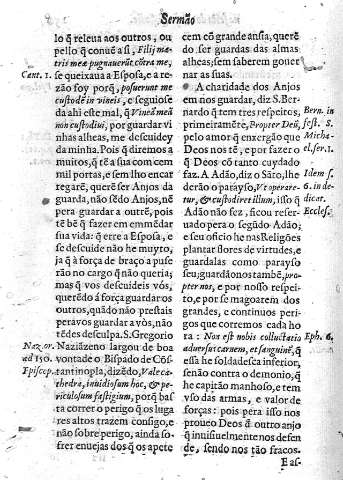 Sermão
lo q̃ releua aos outros, ou
pello q̃ conuẽ a si, Filij ma-
tris meæ pugnauerũt cõtra me,
Cant. 1.
se queixaua a Esposa, e a re-
zão soy porq̃, posuerunt me
custodẽ in vineis, e seguiose
da hi este mal, q̃ Vineã meã
non custodiui, por guardar vi
nhas alheas, me descuidey
da minha. Pois q̃ diremos a
muitos, q̃ tẽ a sua com cem
mil portas, e sem lho encar
regarẽ, querẽ ser Anjos da
guarda, não sẽdo Anjos, nẽ
pera guardar a outrẽ, pois
tẽ bẽ q̃ fazer em emmẽdar
sua vida: q̃ erre a Esposa, e
se descuide não he muyto,
ja q̃ à força de braço a puse
rão no cargo q̃ não queria;
mas q̃ vos descuideis vós,
querẽdo à força guardar os
outros, quãdo não prestais
pera vos guardar a vòs, não
tẽ desculpa. S. Gregorio
Naz. or.
Naziãzeno largou de boa
ad 150.
vontade o Bispado de Cõs-
Episcop.
tantinopla, dizẽdo, Vale ca-
thedra, inuidiosum hoc, & pe-
riculosum fastigium, porq̃ bas
ta correr o perigo q̃ os luga
res altos trazem consigo, e
não sobre perigo, ainda so-
frer enuejas dos q̃ os apete
cem cõ grande ãnsia, querẽ
do ser guardas das almas
alheas, sem saberem gouer
nar as suas.
A charidade dos Anjos
em nos guardar, diz S. Ber-
Bern. in
nardo q̃ tem tres respeitos,
fest. S.
primeiramẽte, Propter Deũ,
Micha-
pelo amor q̃ enxergão que
el, ser. 1.
Deos nos tẽ, e por fazer o
q̃ Deos cõ tanto cuydado
faz. A Adão, diz o Sãto, lhe
Idem s.
derão o parayso, Vt operare-
6. in de-
tur, & custodiret illum, isso q̃
dicat.
Adão não fez, ficou reser-
Eccles.
uado pera o segũdo Adão;
e seu officio he nas Religiões
plantar flores de virtudes, e
guardalas como parayso
seu; guardãonos tambẽ, pro-
pter nos, e por nosso respei-
to, e por se magoarem dos
grandes, e continuos peri-
gos que corremos cada ho
ra: Nos est nobis colluctatio
Eph. 6.
aduersus carnem, et sanguinẽ, q̃
essa he soldadesca inferior,
senão contra o demonio, q̃
he capitão manhoso, e tem
vso das armas, e valor de
forças: pois pera isso nos
prouco Deos q̃ outro anjo
q̃ inuisiuelmente nos defen
de, sendo nos tão fracos.
E as-